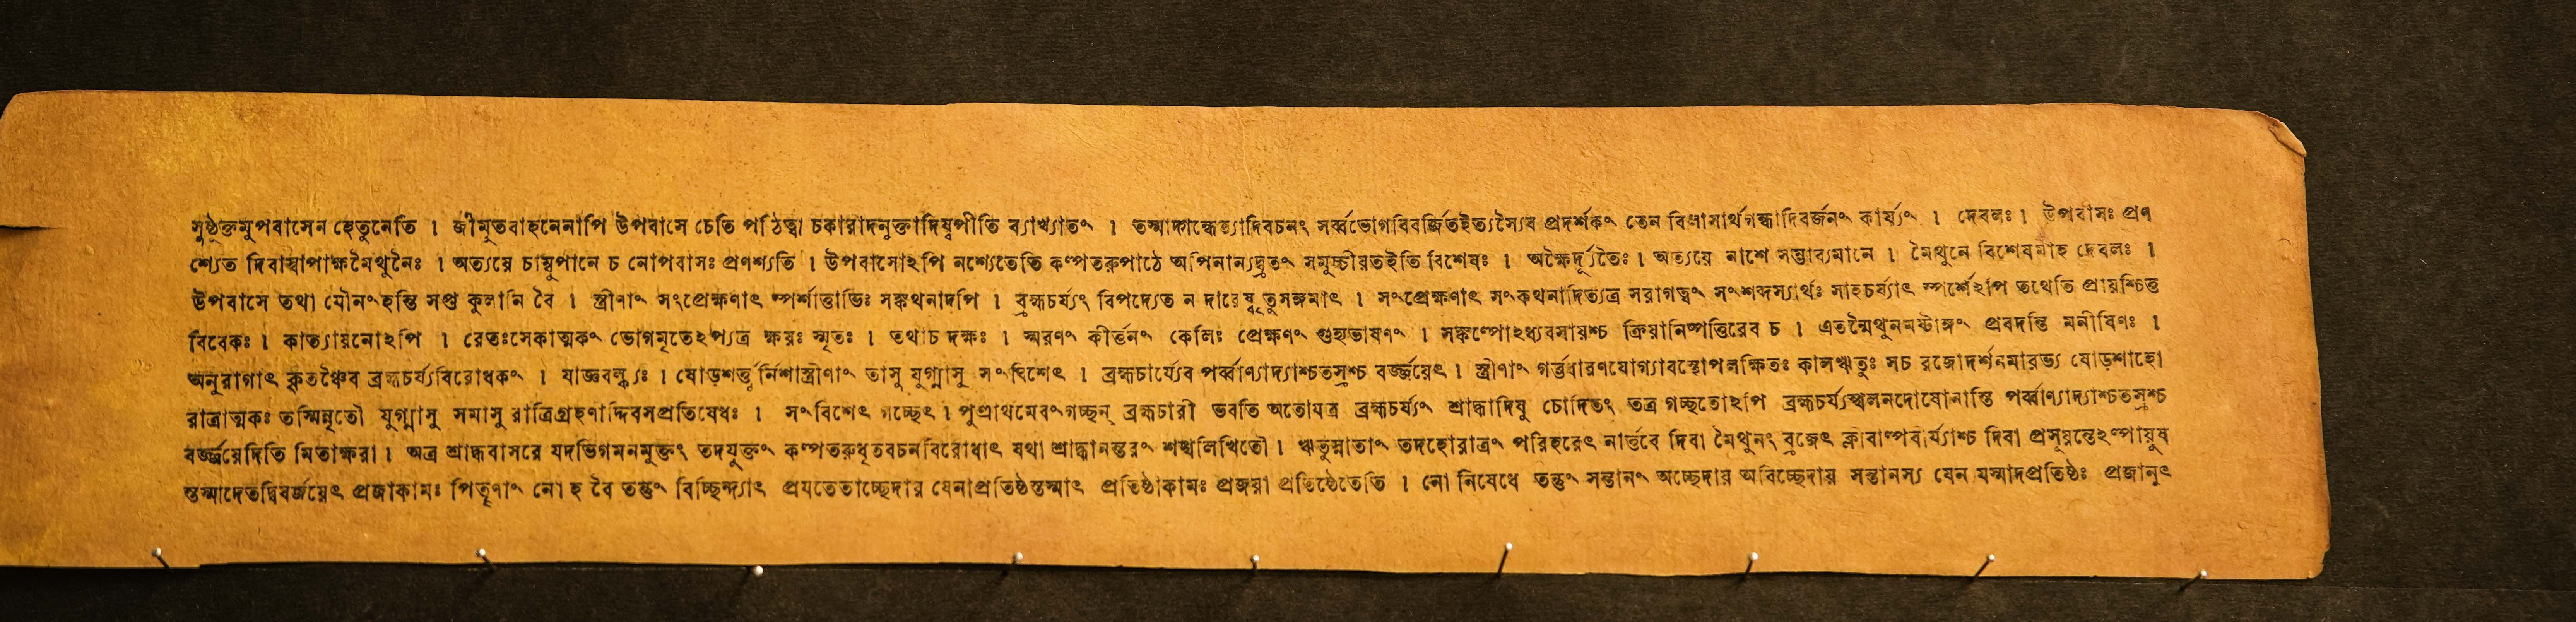 সুষ্ঠূক্তমুপবাসেন হেতুনেতি । জীমূতবাহনেনাপি উপবাসে চেতি পঠিত্বা চকারাদনুক্তাদিষ্বপীতি ব্যাখ্যাতং । তস্মাদ্গন্ধেত্যাদিবচনং সর্ব্বভোগবিবর্জ্জিতইত্যস্যৈব প্রদর্শকং তেন বিলাসার্থগন্ধাদিবর্জনং কার্য্যং । দেবলঃ । উপবাসঃ প্রণ
শ্যেত দিবাস্বাপাক্ষমৈথুনৈঃ । অত্যয়ে চাম্বুপানে চ নোপবাসঃ প্রণশ্যতি । উপবাসোঽপি নশ্যেতেতি কল্পতরুপাঠে অপিনান্যদ্ব্রতং সমুচ্চীয়তইতি বিশেষঃ । অক্ষৈর্দ্যূতৈঃ । অত্যয়ে নাশে সম্ভাব্যমানে । মৈথুনে বিশেষমাহ দেবলঃ ।
উপবাসে তথা যৌনংহন্তি সপ্ত কুলানি বৈ । স্ত্রীণাং সংপ্রেক্ষণাৎ স্পর্শাত্তাভিঃ সঙ্কথনাদপি । ব্রহ্মচর্য্যং বিপদ্যেত ন দারেষ্বৃতুসঙ্গমাৎ । সংপ্রেক্ষণাৎ সংকথনাদিত্যত্র সরাগত্বং সংশব্দস্যার্থঃ সাহচর্য্যাৎ স্পর্শেঽপি তথেতি প্রায়শ্চিত্ত
বিবেকঃ । কাত্যায়নোঽপি । রেতঃসেকাত্মকং ভোগমৃতেঽপ্যত্র ক্ষয়ঃ স্মৃতঃ । তথাচ দক্ষঃ । স্মরণং কীর্ত্তনং কেলিঃ প্রেক্ষণং গুহ্যভাষণং । সঙ্কল্পোঽধ্যবসায়শ্চ ক্রিয়ানিষ্পত্তিরেব চ । এতন্মৈথুনমষ্টাঙ্গং প্রবদন্তি মনীষিণঃ ।
অনুরাগাৎ কৃতঞ্চৈব ব্রহ্মচর্য্যবিরোধকং । যাজ্ঞবল্ক্যঃ । ষোড়শর্ত্তূর্নিশাস্ত্রীণাং তাসু যুগ্মাসু সংবিশেৎ । ব্রহ্মচার্য্যেব পর্ব্বাণ্যাদ্যাশ্চতস্রশ্চ বর্জ্জয়েৎ । স্ত্রীণাং গর্ত্তধারণযোগ্যাবস্থোপলক্ষিতঃ কালঋতুঃ সচ রজোদর্শনমারভ্য ষোড়শাহো
রাত্রাত্মকঃ তস্মিন্নৃতৌ যুগ্মাসু সমাসু রাত্রিগ্রহণাদ্দিবসপ্রতিষেধঃ । সংবিশেৎ গচ্ছেৎ । পুত্রাথমেবংগচ্ছন্ ব্রহ্মচারী ভবতি অতোযত্র ব্রহ্মচর্য্যং শ্রাদ্ধাদিষু চোদিতং তত্র গচ্ছতোঽপি ব্রহ্মচর্য্যস্খলনদোষোনাস্তি পর্ব্বাণ্যাদ্যাশ্চতস্রশ্চ
বর্জ্জয়েদিতি মিতাক্ষরা । অত্র শ্রাদ্ধবাসরে যদভিগমনমুক্তং তদযুক্তং কল্পতরুধৃতবচনবিরোধাৎ যথা শ্রাদ্ধানন্তরং শঙ্খলিখিতৌ । ঋতুস্নাতাং তদহোরাত্রং পরিহরেৎ নার্ত্তবে দিবা মৈথুনং ব্রজেৎ ক্লীবাল্পবীর্য্যাশ্চ দিবা প্রসূয়ন্তেঽল্পায়ুষ
স্তস্মাদেতদ্বিবর্জয়েৎ প্রজাকামঃ পিতৄণাং নো হ বৈ তন্তুং বিচ্ছিন্দ্যাৎ প্রযতেতাচ্ছেদায় যেনাপ্রতিষ্ঠস্তস্মাৎ প্রতিষ্ঠাকামঃ প্রজয়া প্রতিষ্ঠেতেতি । নো নিষেধে তন্তুং সন্তানং অচ্ছেদায় অবিচ্ছেদায় সন্তানস্য যেন যস্মাদপ্রতিষ্ঠঃ প্রজানুৎ